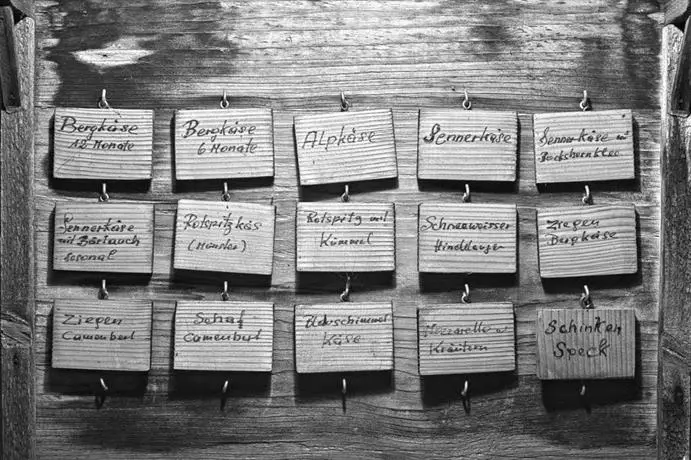 Bergkäse
12 Monate
Bergkäse
6 Monate
Alpkäse
Sennerkäse
Sennerkäse mit
Bockshornklee
Sennerkäse
mit Bärlauch
sesonal
Rotspitzkäs
(Münster)
Rotspitz mit
Kümmel
Schneeweisser
Ziegen
Bergkäse
Ziegen
Camenbert
Schaf
Camenbert
Blauschimmel
Käse
Kräutern
Schinken
Speck